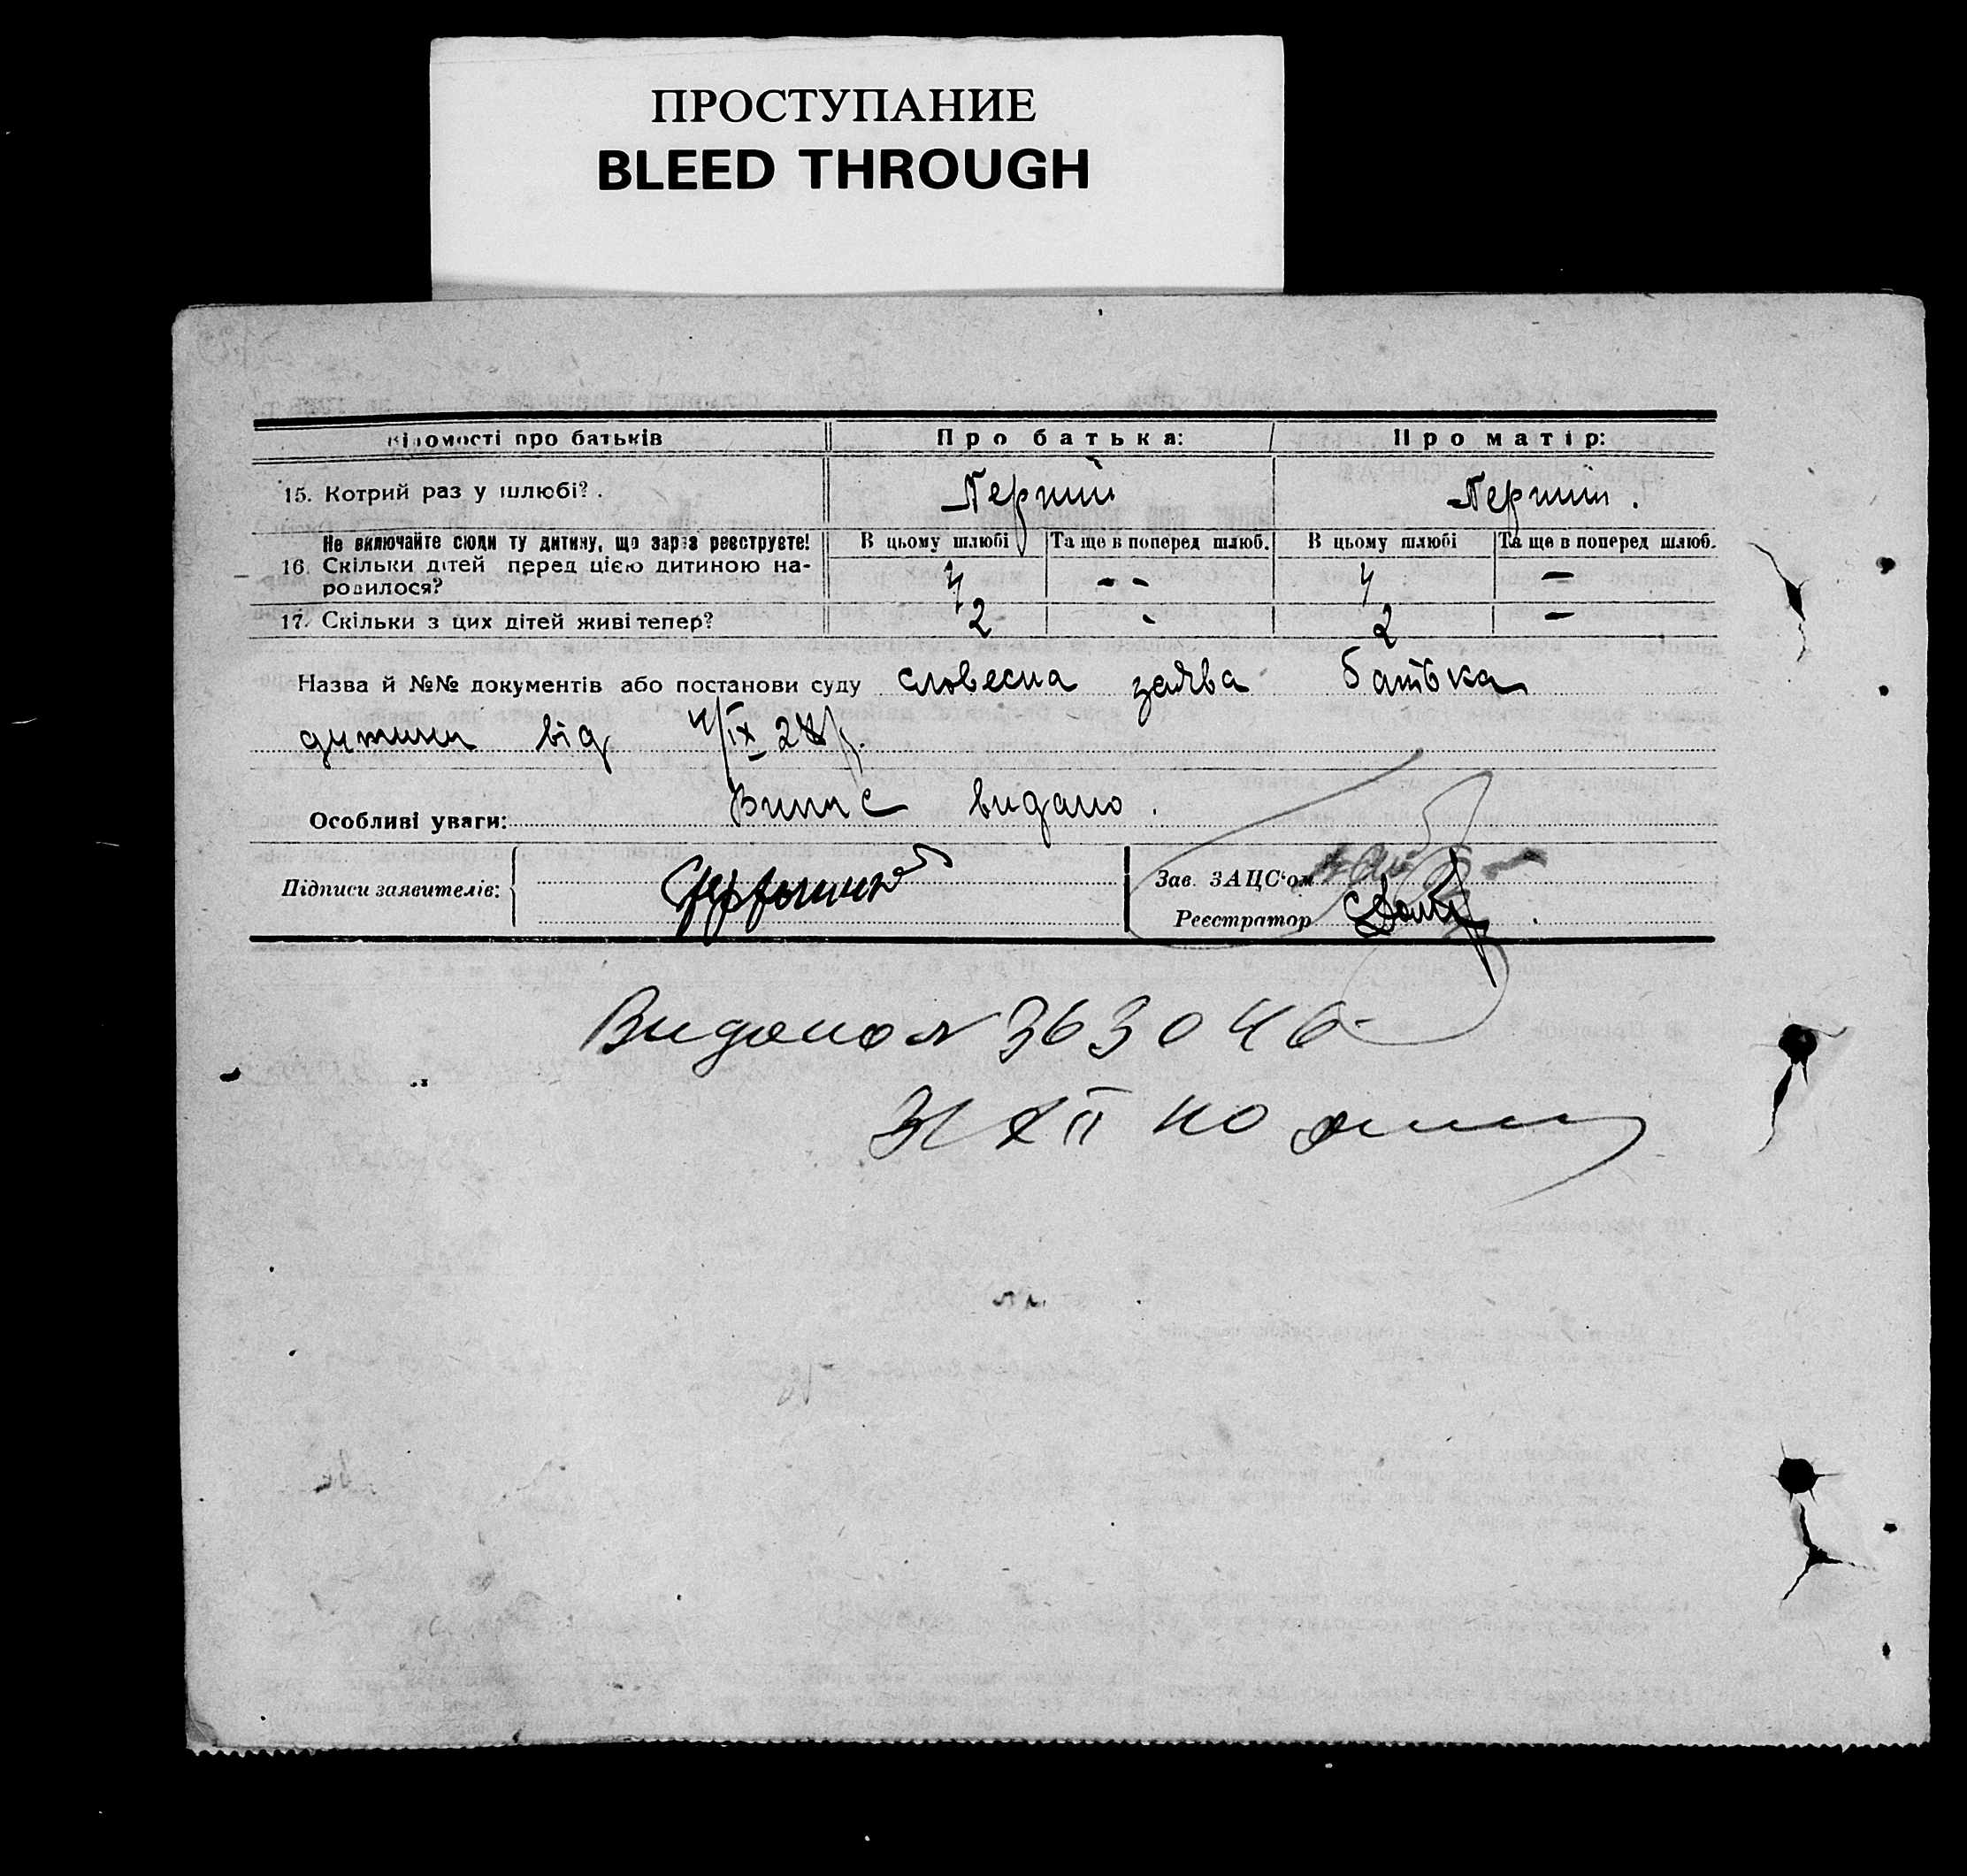 ПРОСТУПАНИЕ
BLEED THROUGH
Відомості про батьків Про батька: Про матір:
15. Котрий раз у шлюбі? . Перший Перший .
Не включайте сюди ту дитину, що зараз реєструєте! В цьому шлюбі Та ще в поперед шлюб. В цьому шлюбі Та ще в поперед шлюб.
16. Скільки дітей перед цією дитиною на-
родилося? 4 - - 4 —
17. Скільки з цих дітей живі тепер? 2 - 2 —
Назва й №№ документів або постанови суду словесна заява батька
дитини від 4/IX 28р.
Особливі уваги: Випис видано .
Підписи заявителів: Зав. ЗАЦС‘ом
Реєстратор
Видано N 363046
31 XII 40